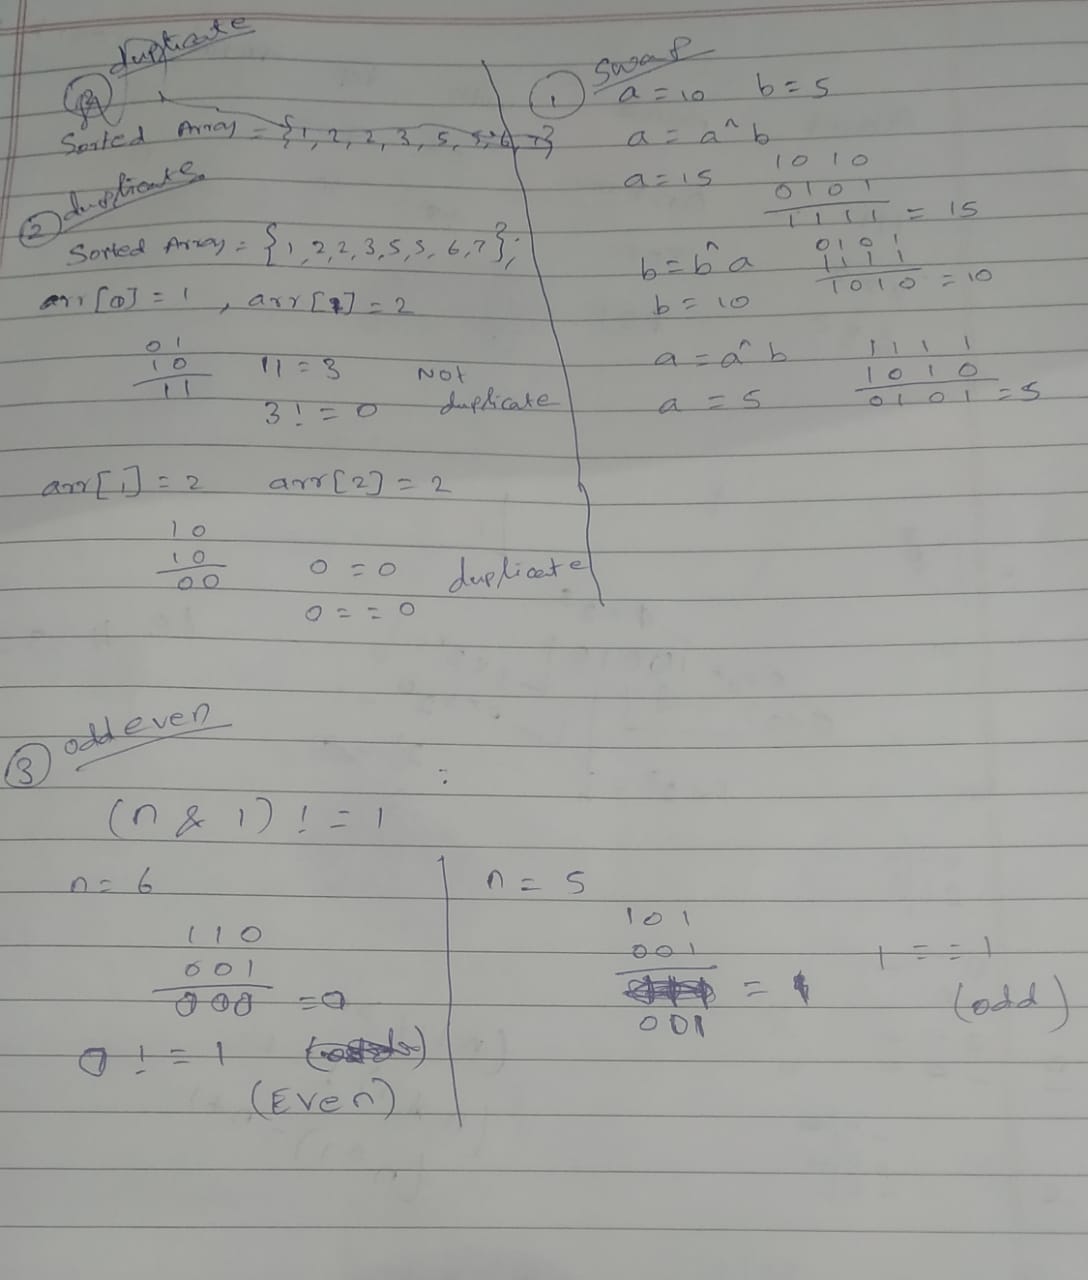 duplicate
Sorted Array = {1, 2, 2, 3, 5, 5, 6, 7}
② duplicate
Sorted Array = {1, 2, 2, 3, 5, 5, 6, 7};
arr[0] = 1 , arr[1] = 2
01
10
11
11 = 3 Not duplicate
3 != 0
arr[1] = 2 arr[2] = 2
10
10
00
0 = 0 duplicate
0 == 0
① Swap
a = 10 b = 5
a = a^b
a = 15
1010
0101
1111 = 15
b = b^a
0101
1111
1010 = 10
b = 10
a = a^b
1111
1010
0101 = 5
a = 5
③ odd even
:
(n & 1) != 1
n = 6
110
001
000 = 0
0 != 1
(Even)
n = 5
101
001
= 1
001
1 == 1
(odd)